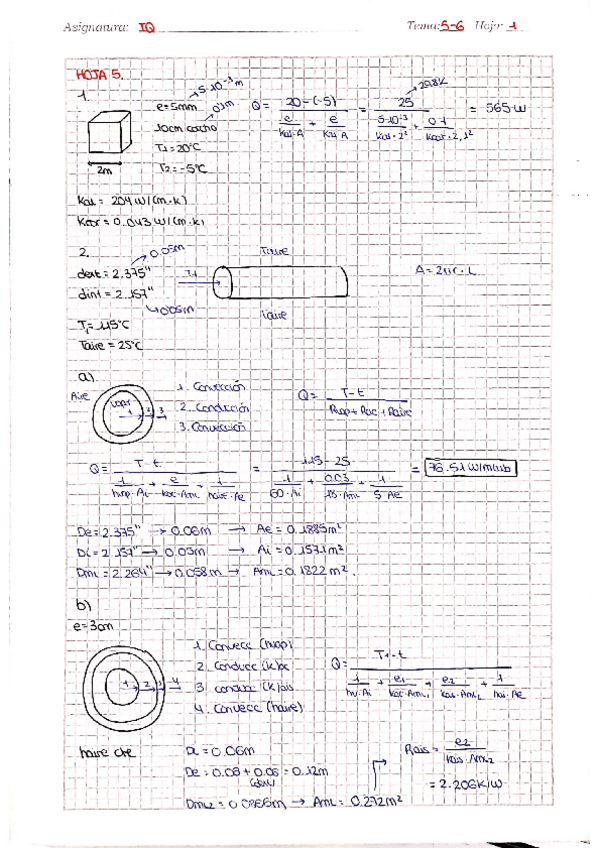 Asignatura: IQ Tema: 5-6 Hoja: 1
HOJA 5.
1.
e = 5mm → 5·10⁻³m
10cm corcho → 0.1m
T1 = 20°C
T2 = -5°C
2m
Q = 20-(-5) / (e/Kal·A + e/Kcor·A) = 25 / (5·10⁻³/Kal·2² + 0.1/Kcor·2,1²) = 565 W
298K
Kal = 204 W/(m·K)
Kcor = 0.043 W/(m·K)
2.
dext = 2.375" → 0.06m
dint = 2.157" → 0.05m
T1 = 115°C
Taire = 25°C
T1
Taire
Taire
A = 2πr·L
a)
Aire
vapor
1 2 3
1. Convección
2. Conducción
3. Convección
Q = T-t / (Rvap + Rac + Raire)
Q = T-t / (1/hvap·Ai + e/Kac·Aml + 1/haire·Ae) = 115-25 / (1/60·Ai + 0.03/18·Aml + 1/5·Ae) = 76.51 W/mtub
De = 2.375" → 0.06m → Ae = 0.1885m²
Di = 2.157" → 0.05m → Ai = 0.1571m²
Dml = 2.264" → 0.058m → Aml = 0.1822m².
b)
e = 3cm
1 2 3 4
1. Convecc (hvap)
2. Conducc (K)ac
3. conducc (K)ais
4. Convecc (haire)
Q = T1-t / (1/hv·Ai + e1/Kac·Aml1 + e2/Kais·Aml2 + 1/hai·Ae)
haire cte
Di = 0.06m
De = 0.06 + 0.06 = 0.12m
Dml2 = 0.0866m → Aml = 0.272m²
Rais = e2 / Kais·Aml2
= 2.206K/W